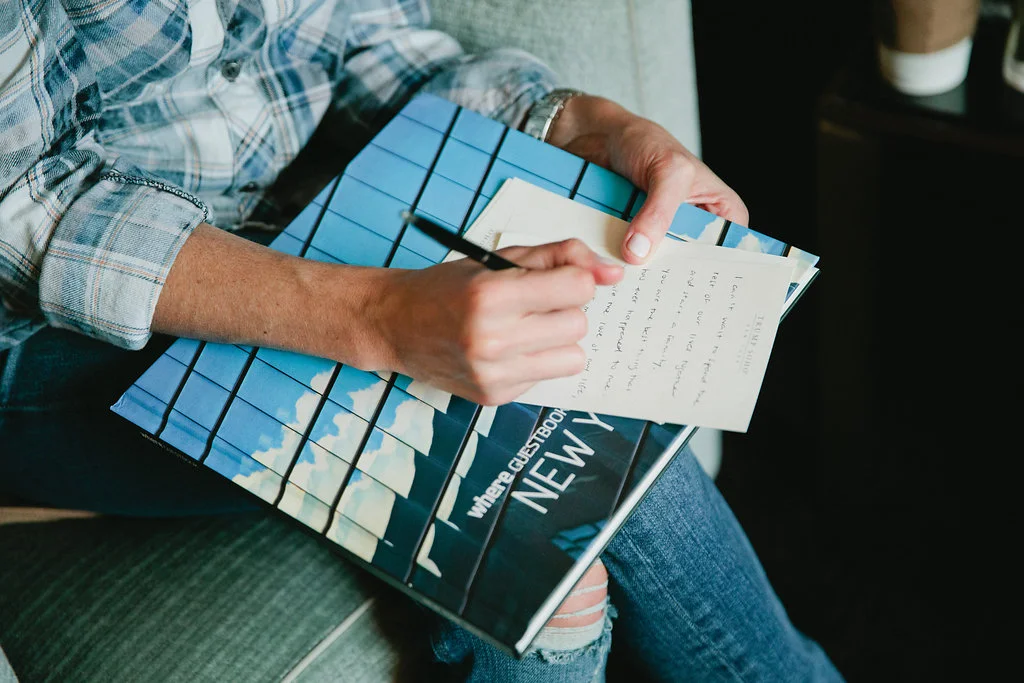 TRUMP SOHO
NEW YORK
I can't wait to spend the
rest of our lives together
and start a family.
You are the best thing that
has ever happened to me.
the love of my life,
where GUESTBOOK
NEW Y